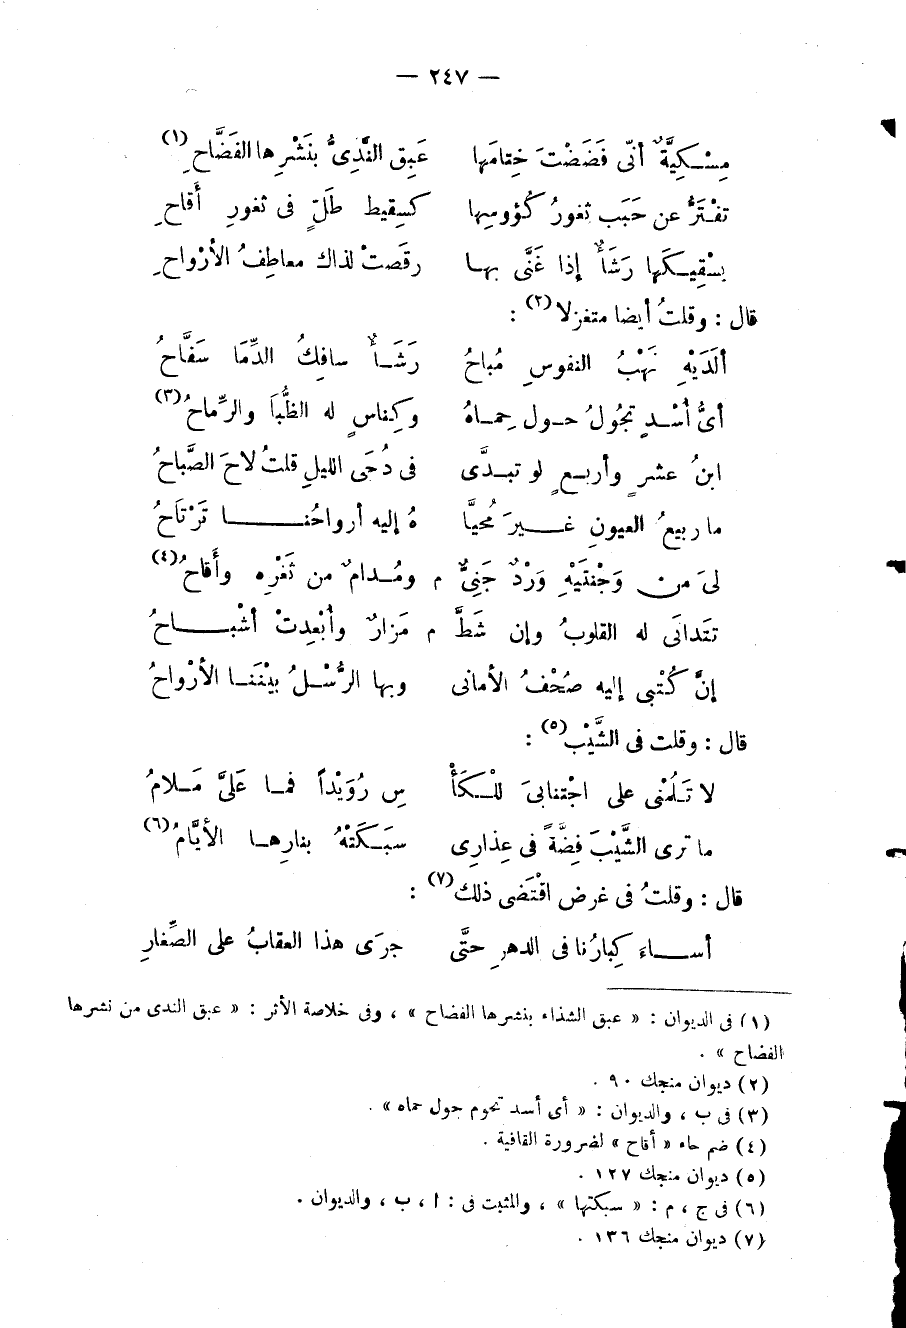 — ٢٤٧ —
مِسْكِيَّةٌ أنّى فَضَضْتَ خِتامَها عَبِق النَّدِىُّ بنَشْرِها الفَضَّاحِ (١)
تفْتَرُّ عن حَبَب ثغورُ كُؤوسِها كسِقيط طَلّ فى ثغورِ أَقاحِ
يسْقِيكَها رَشَأٌ إذا غَنَّى بها رقَصتْ لذاك معاطِفُ الأرْواحِ
قال : وقلتُ أيضا متغزلا (٢) :
ألَدَيْهِ نَهْبُ النفوسِ مُباحُ رَشَأٌ سافِكُ الدِّمَا سَفَّاحُ
أىُّ أُسْدٍ تجُولُ حول حِماهُ وكِناسٍ له الظُّبَا والرِّماحُ (٣)
ابنُ عشرٍ وأربعٍ لو تبدَّى فى دُجَى الليلِ قلتُ لاحَ الصَّباحُ
ما ربيعُ العيونِ غيرَ مُحيَّا هُ إليه أرواحُنا تَرْتَاحُ
لىَ من وَجْنتَيْهِ وَرْدٌ جَنِىٌّ م ومُدامٌ من ثَغْرِه وأَقاحُ (٤)
تتَدانَى له القلوبُ وإن شَطَّ م مَزارٌ وأُبْعِدتْ أشْباحُ
إنَّ كُتْبِى إليه صُحْفُ الأمانى وبها الرُّسْلُ بيْنَنا الأرْواحُ
قال : وقلت فى الشَّيْب (٥) :
لا تَلُمْنى على اجْتنابىَ للْكَأْ سِ رُوَيْداً فما عَلَىَّ مَلامُ
ما ترى الشَّيْبَ فِضَّةً فى عِذارِى سبَكَتْهُ بنارِها الأيَّامُ (٦)
قال : وقلتُ فى غرض اقْتَضى ذلك (٧) :
أساءَ كِبارُنا فى الدهرِ حتَّى جرَى هذا العقابُ على الصِّغارِ
(١) فى الديوان : « عبق الشذاء بنشرها الفضاح » ، وفى خلاصة الأثر : « عبق الندى من نشرها
الفضاح » .
(٢) ديوان منجك ٩٠ .
(٣) فى ب ، والديوان : « أى أسد تحوم حول حماه » .
(٤) ضم حاء « أقاح » لضرورة القافية .
(٥) ديوان منجك ١٢٧ .
(٦) فى ج ، م : « سبكتها » ، والمثبت فى : ا ، ب ، والديوان .
(٧) ديوان منجك ١٣٦ .